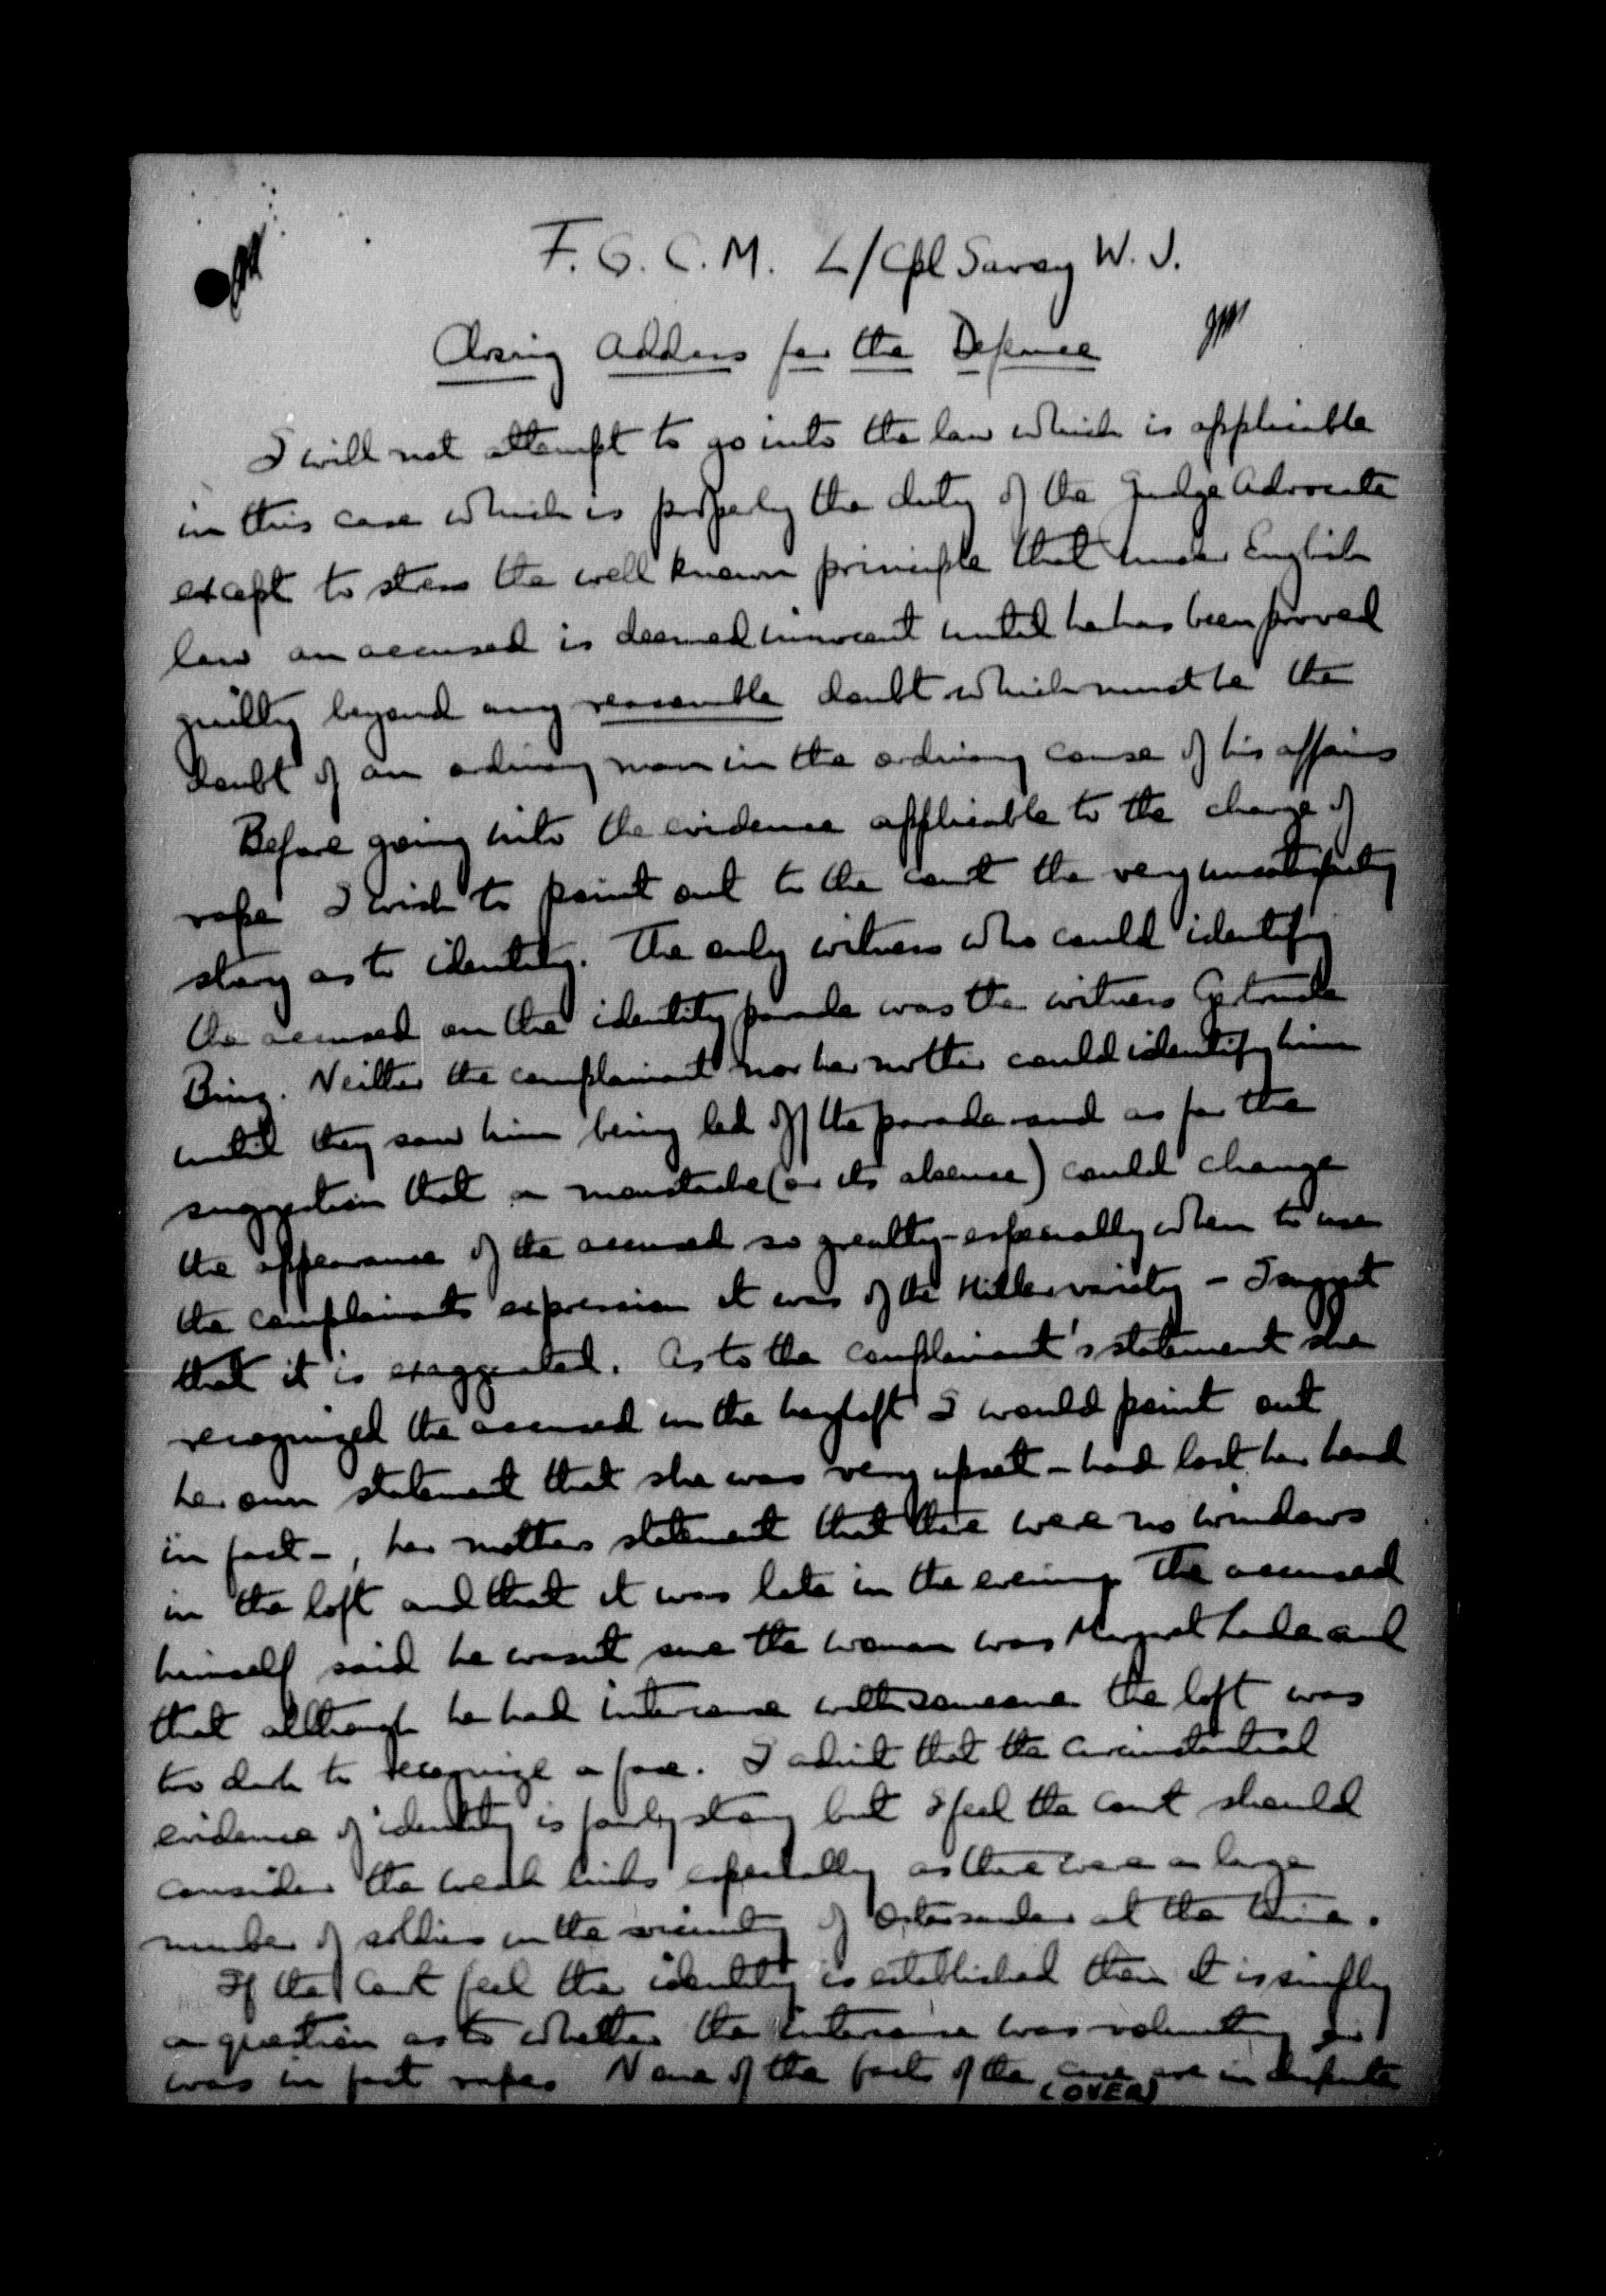 F. G. C. M. L/Cpl Savoy W. J.
Closing Address for the Defence
I will not attempt to go into the law which is applicable
in this case which is properly the duty of the Judge Advocate
except to stress the well known principle that under English
law an accused is deemed innocent until he has been proved
guilty beyond any reasonable doubt which must be the
doubt of an ordinary man in the ordinary course of his affairs
Before going into the evidence applicable to the charge of
rape I wish to point out to the court the very unsatisfactory
story as to identity. The only witness who could identify
the accused on the identity parade was the witness Gertrude
Bing. Neither the complainant nor her mother could identify him
until they saw him being led off the parade and as for the
suggestion that a moustache (or its absence) could change
the appearance of the accused so greatly - especially when to use
the complainants expression it was of the Hitler variety - I suggest
that it is exaggerated. As to the complainant's statement she
recognized the accused in the hayloft I would point out
her own statement that she was very upset - had lost her head
in fact - , her mothers statement that there were no windows
in the loft and that it was late in the evening. The accused
himself said he wasnt sure the woman was and
that although he had intercourse with someone the loft was
too dark to recognize a face. I admit that the circumstantial
evidence of identity is fairly strong but I feel the court should
consider the weak links especially as there were a large
number of soldiers in the vicinity of at the time.
If the court feel the identity is established then it is simply
a question as to whether the intercourse was voluntary or
was in fact rape. None of the facts of the case are in dispute
(OVER)